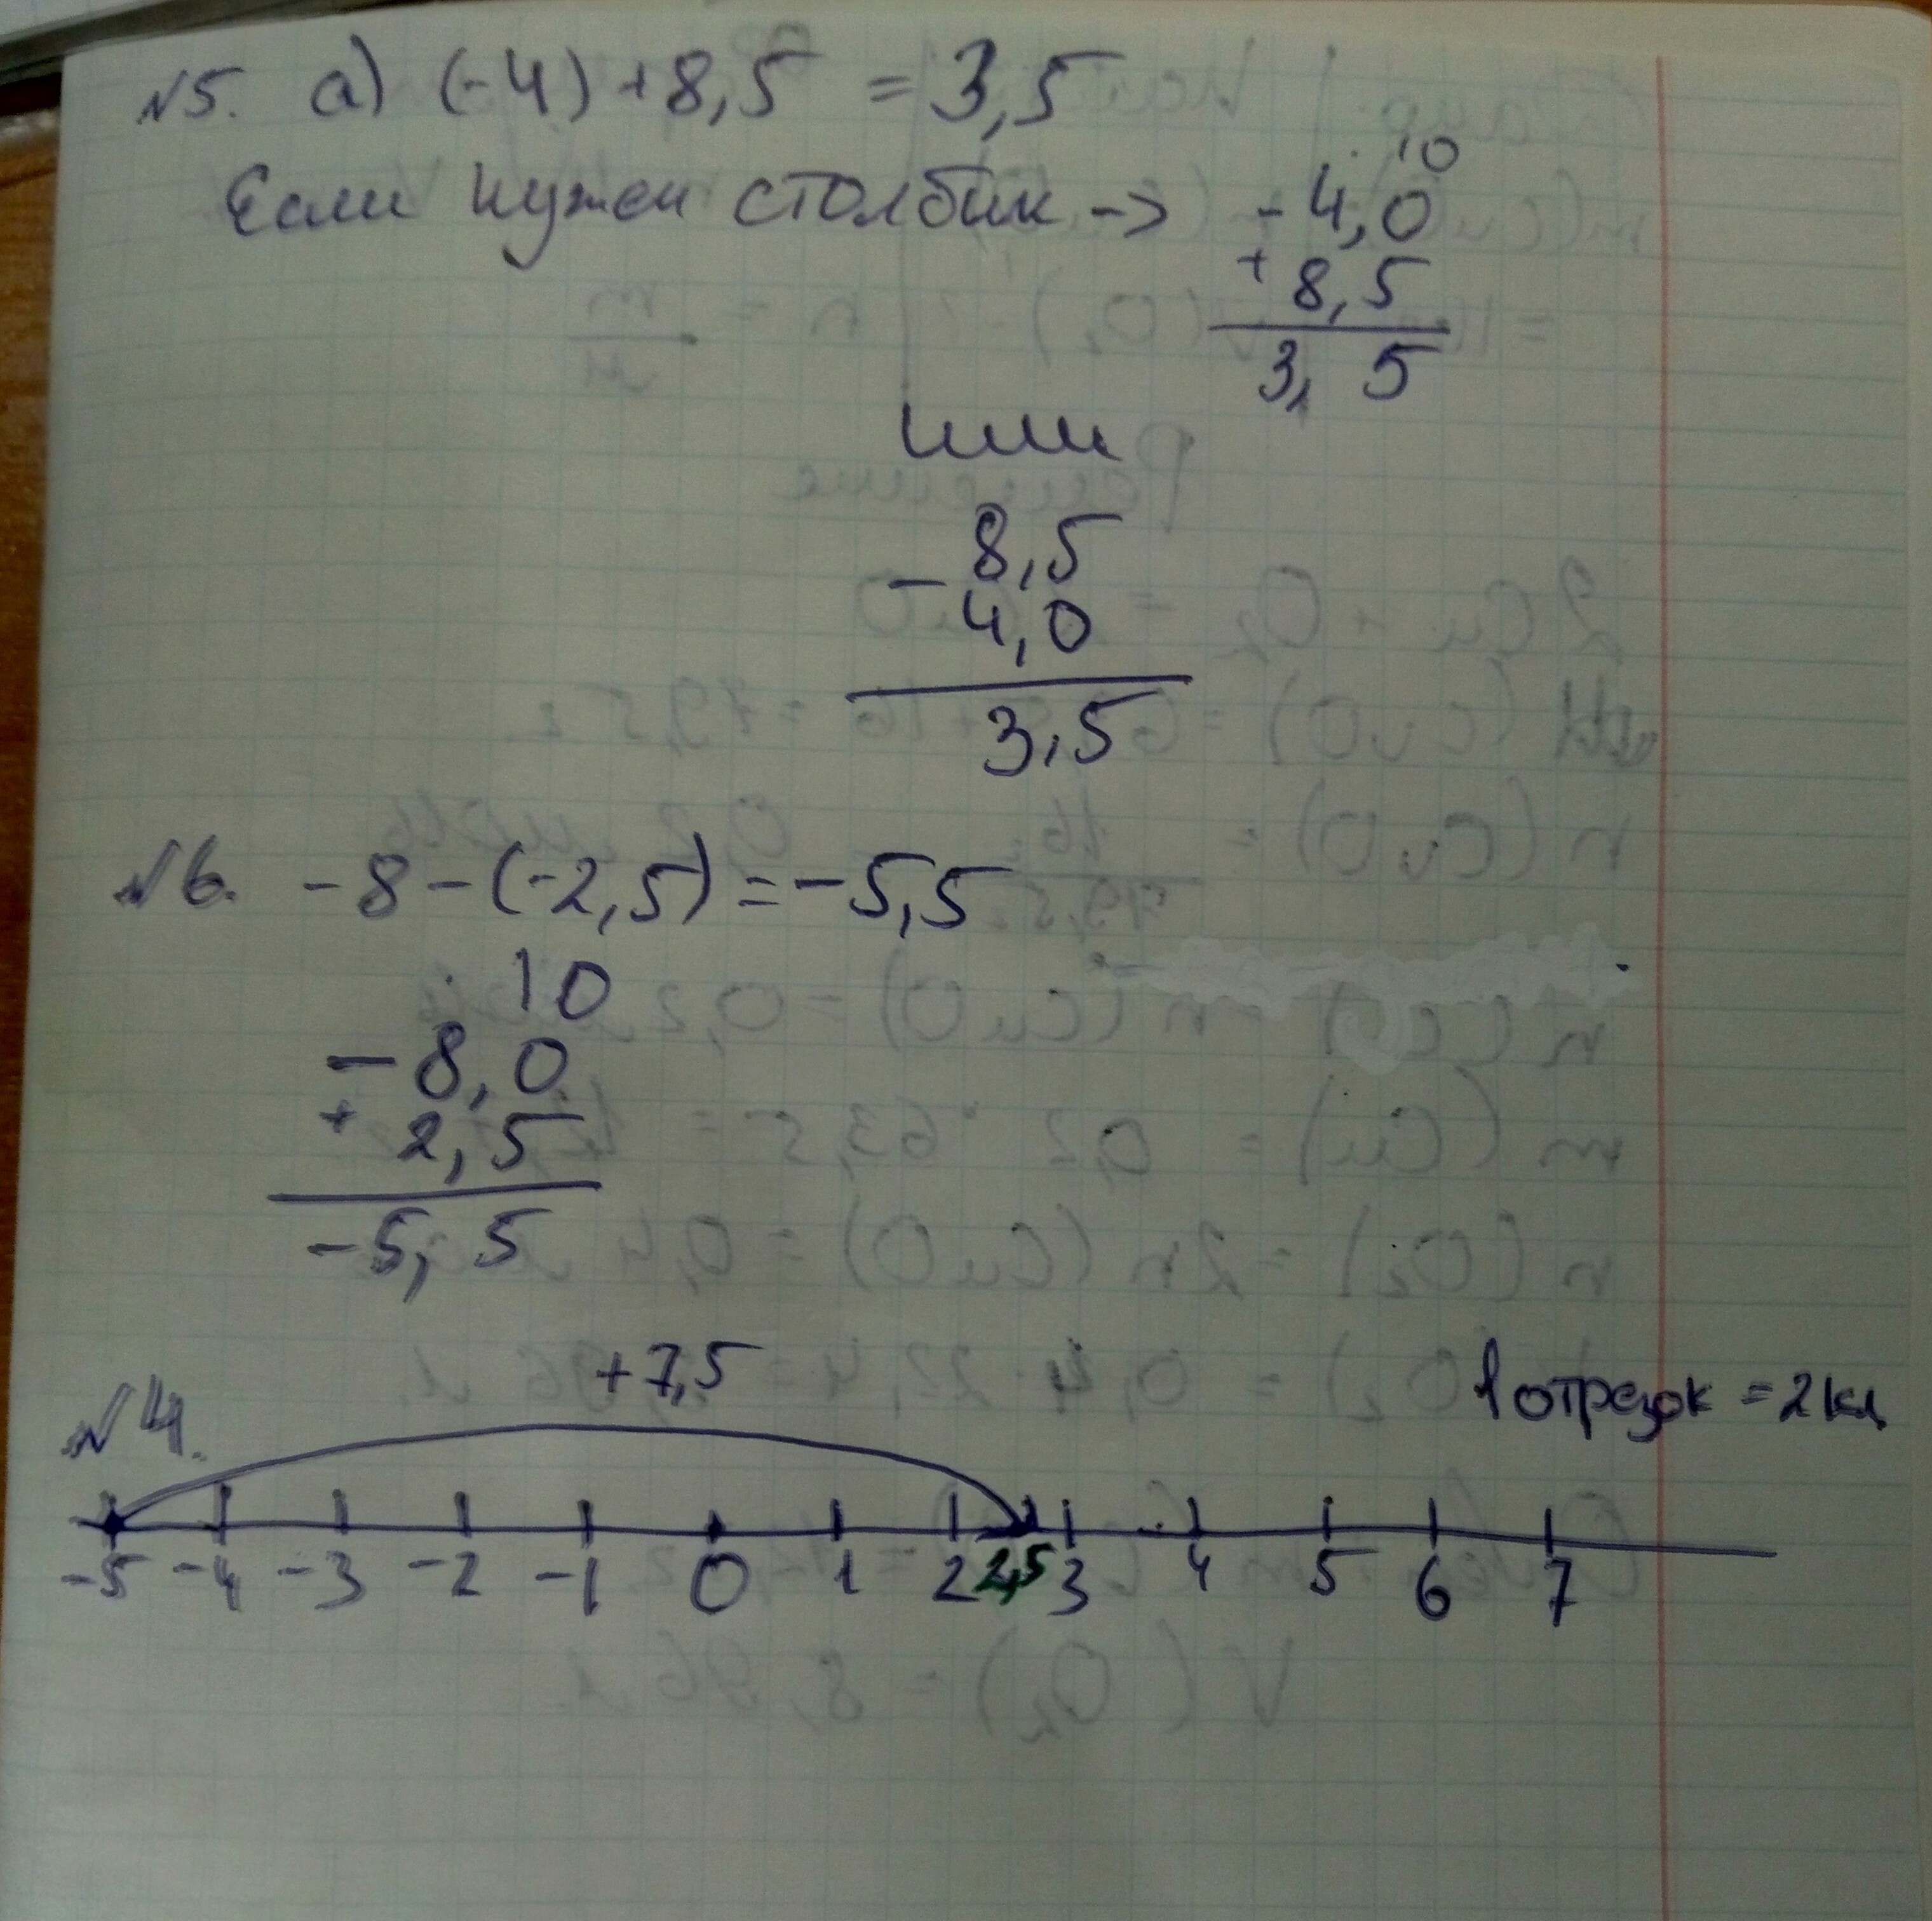 №5. а) (-4) + 8,5 = 3,5
Если нужен столбик ->
10
- 4,0
+ 8,5
3, 5
или
- 8,5
4,0
3,5
№6. - 8 - (-2,5) = -5,5
. 10
- 8,0
+ 2,5
-5, 5
№4.
+7,5
1 отрезок = 2 кл
-5 -4 -3 -2 -1 0 1 2 2,5 3 4 5 6 7